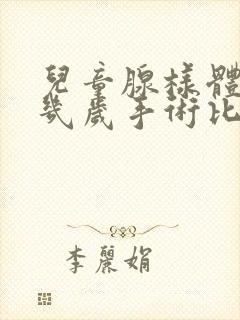 兒童腺樣體
幾歲手術比
李麗娟